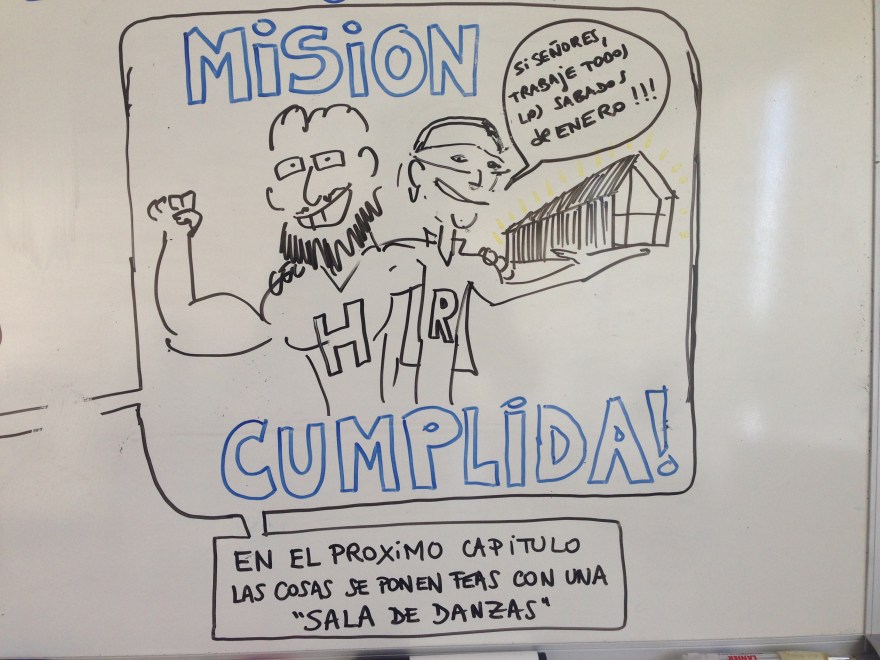 MISION
SI SEÑORES,
TRABAJE TODOS
LOS SABADOS
de ENERO!!!
H
R
CUMPLIDA!
EN EL PROXIMO CAPITULO
LAS COSAS SE PONEN FEAS CON UNA
"SALA DE DANZAS"